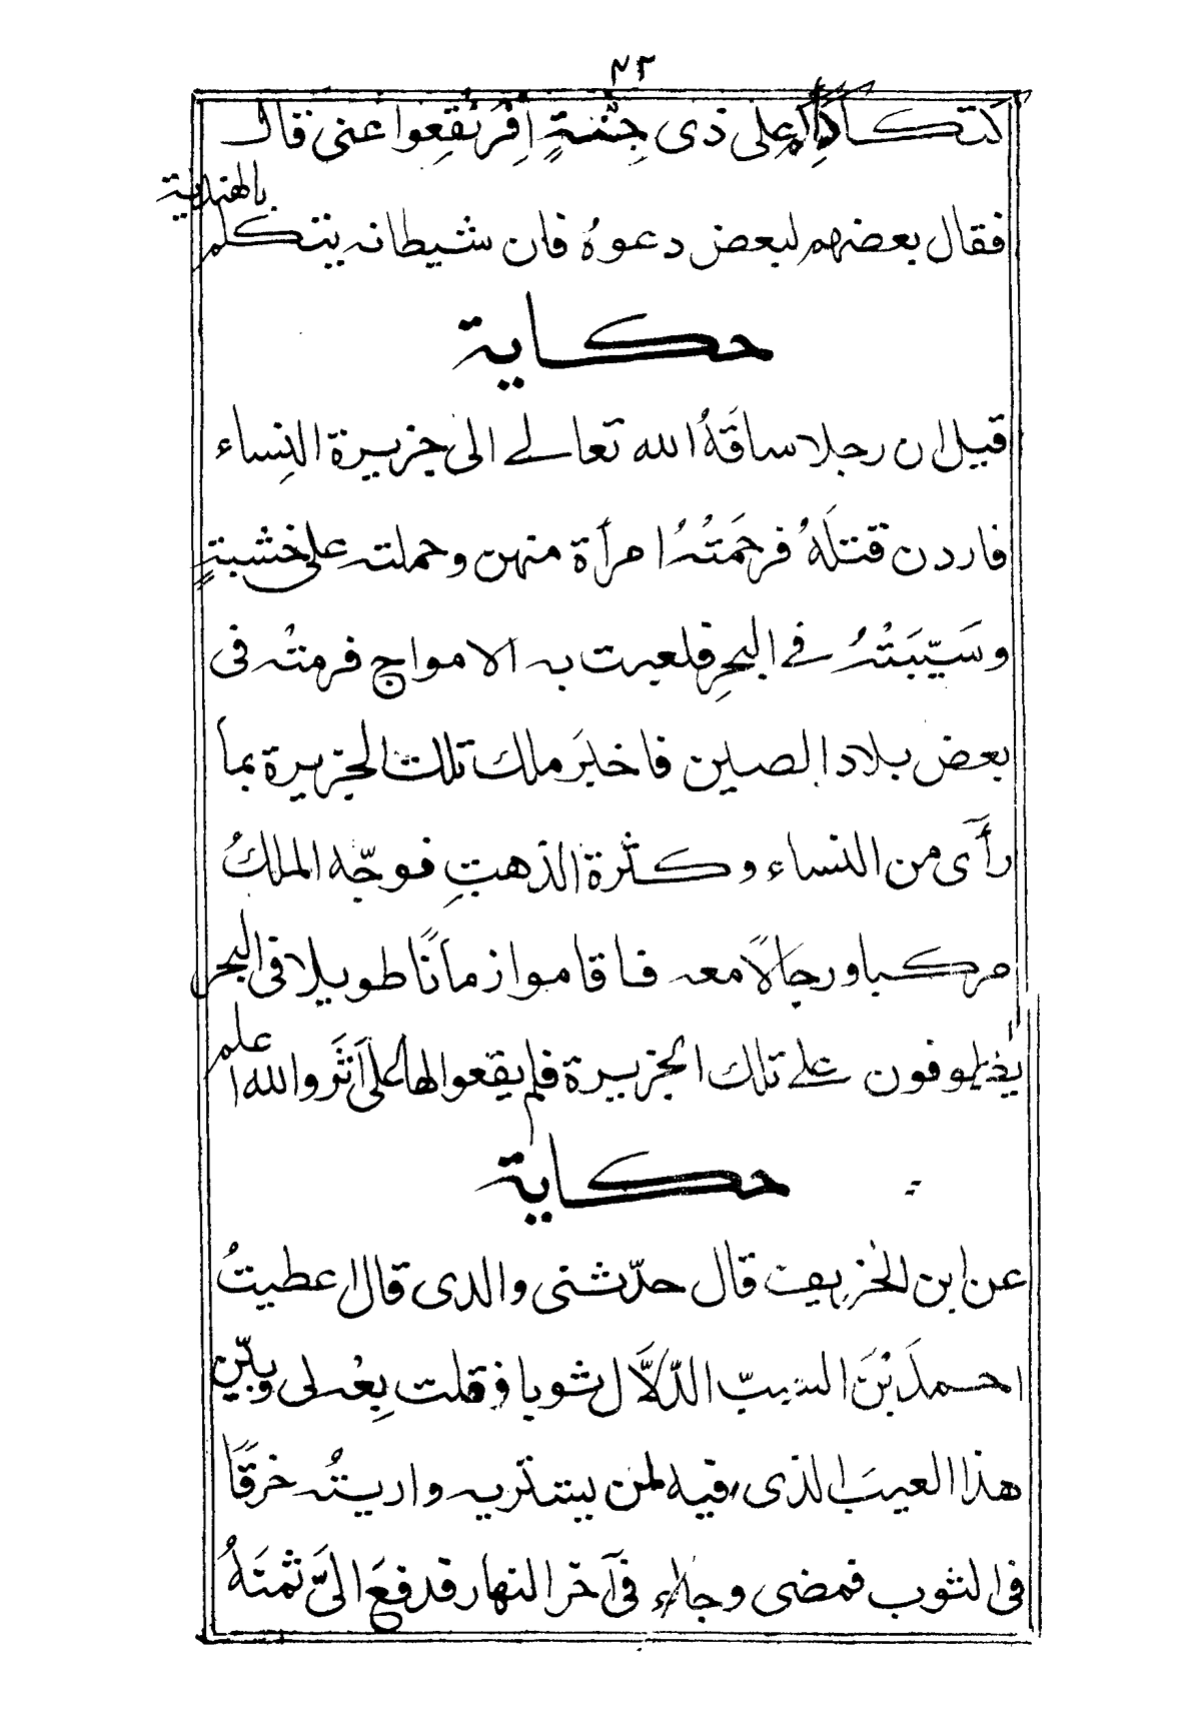 ٤٣
كتكأكؤكم على ذى جِنّةٍ اِفْرَنْقِعوا عنى قال
فقال بعضهم لبعض دعوهُ فان شيطانه يتكلم بالهندية
حكاية
قيل ان رجلا ساقَهُ الله تعالے الى جزيرة النِساء
فاردن قتلَهُ فرحَمَتْهُ امرأة منهن وحملته على خشبةٍ
وسَيّبَتْهُ فے البحرِ فلعبت به الامواج فرمتْه فى
بعض بلاد الصين فاخبَر ملك تلك الجزيرة بما
رأَى من النساء وكثرة الذهبِ فوجّه الملكُ
مركبا ورجالاً معه فاقاموا زمانًا طويلا فى البحر
يطوفون علے تلك الجزيرة فلم يقعوا لها على اَثَر والله اعلم
حكاية
عن ابن الخريف قال حدّثنى والدى قال اعطيتُ
احمدَ بْنَ السبب الدّلاَّل ثوبا وقلت بِعْه لى وبيّن
هذا العيبَ الذى فيه لمن يشتريه واريتُه خرقًا
فى الثوب فمضى وجاء فى آخر النهار فدفعَ الىَّ ثمنَهُ